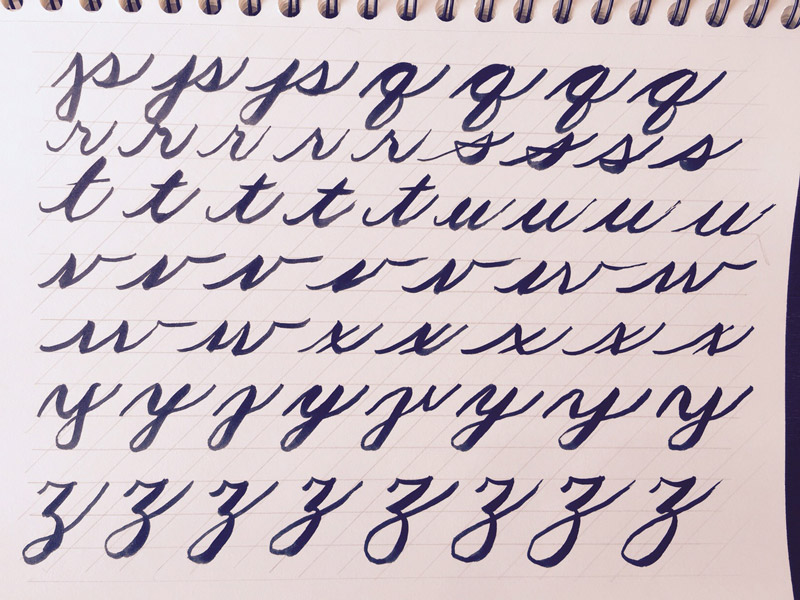 p p p q q q q
r r r r r s s s s
t t t t t u u u u
v v v v v w w
w w x x x x x
y y y y y y y y
z z z z z z z z